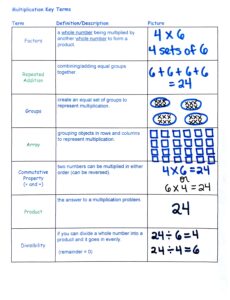 Multiplication Key Terms
Term Definition/Description Picture
Factors
a whole number being multiplied by
another whole number to form a
product.
4 x 6
4 sets of 6
Repeated
Addition
combining/adding equal groups
together.
6+6+6+6
= 24
Groups
create an equal set of groups to
represent multiplication.
Array
grouping objects in rows and columns
to represent multiplication.
Commutative
Property
two numbers can be multiplied in either
order (can be reversed)
4 x 6 = 24
or
6 x 4 = 24
Product
the answer to a multiplication problem
24
Divisibility
if you can divide a whole number into a
product and it goes in evenly.
(remainder = 0)
24 ÷ 6 = 4
24 ÷ 4 = 6